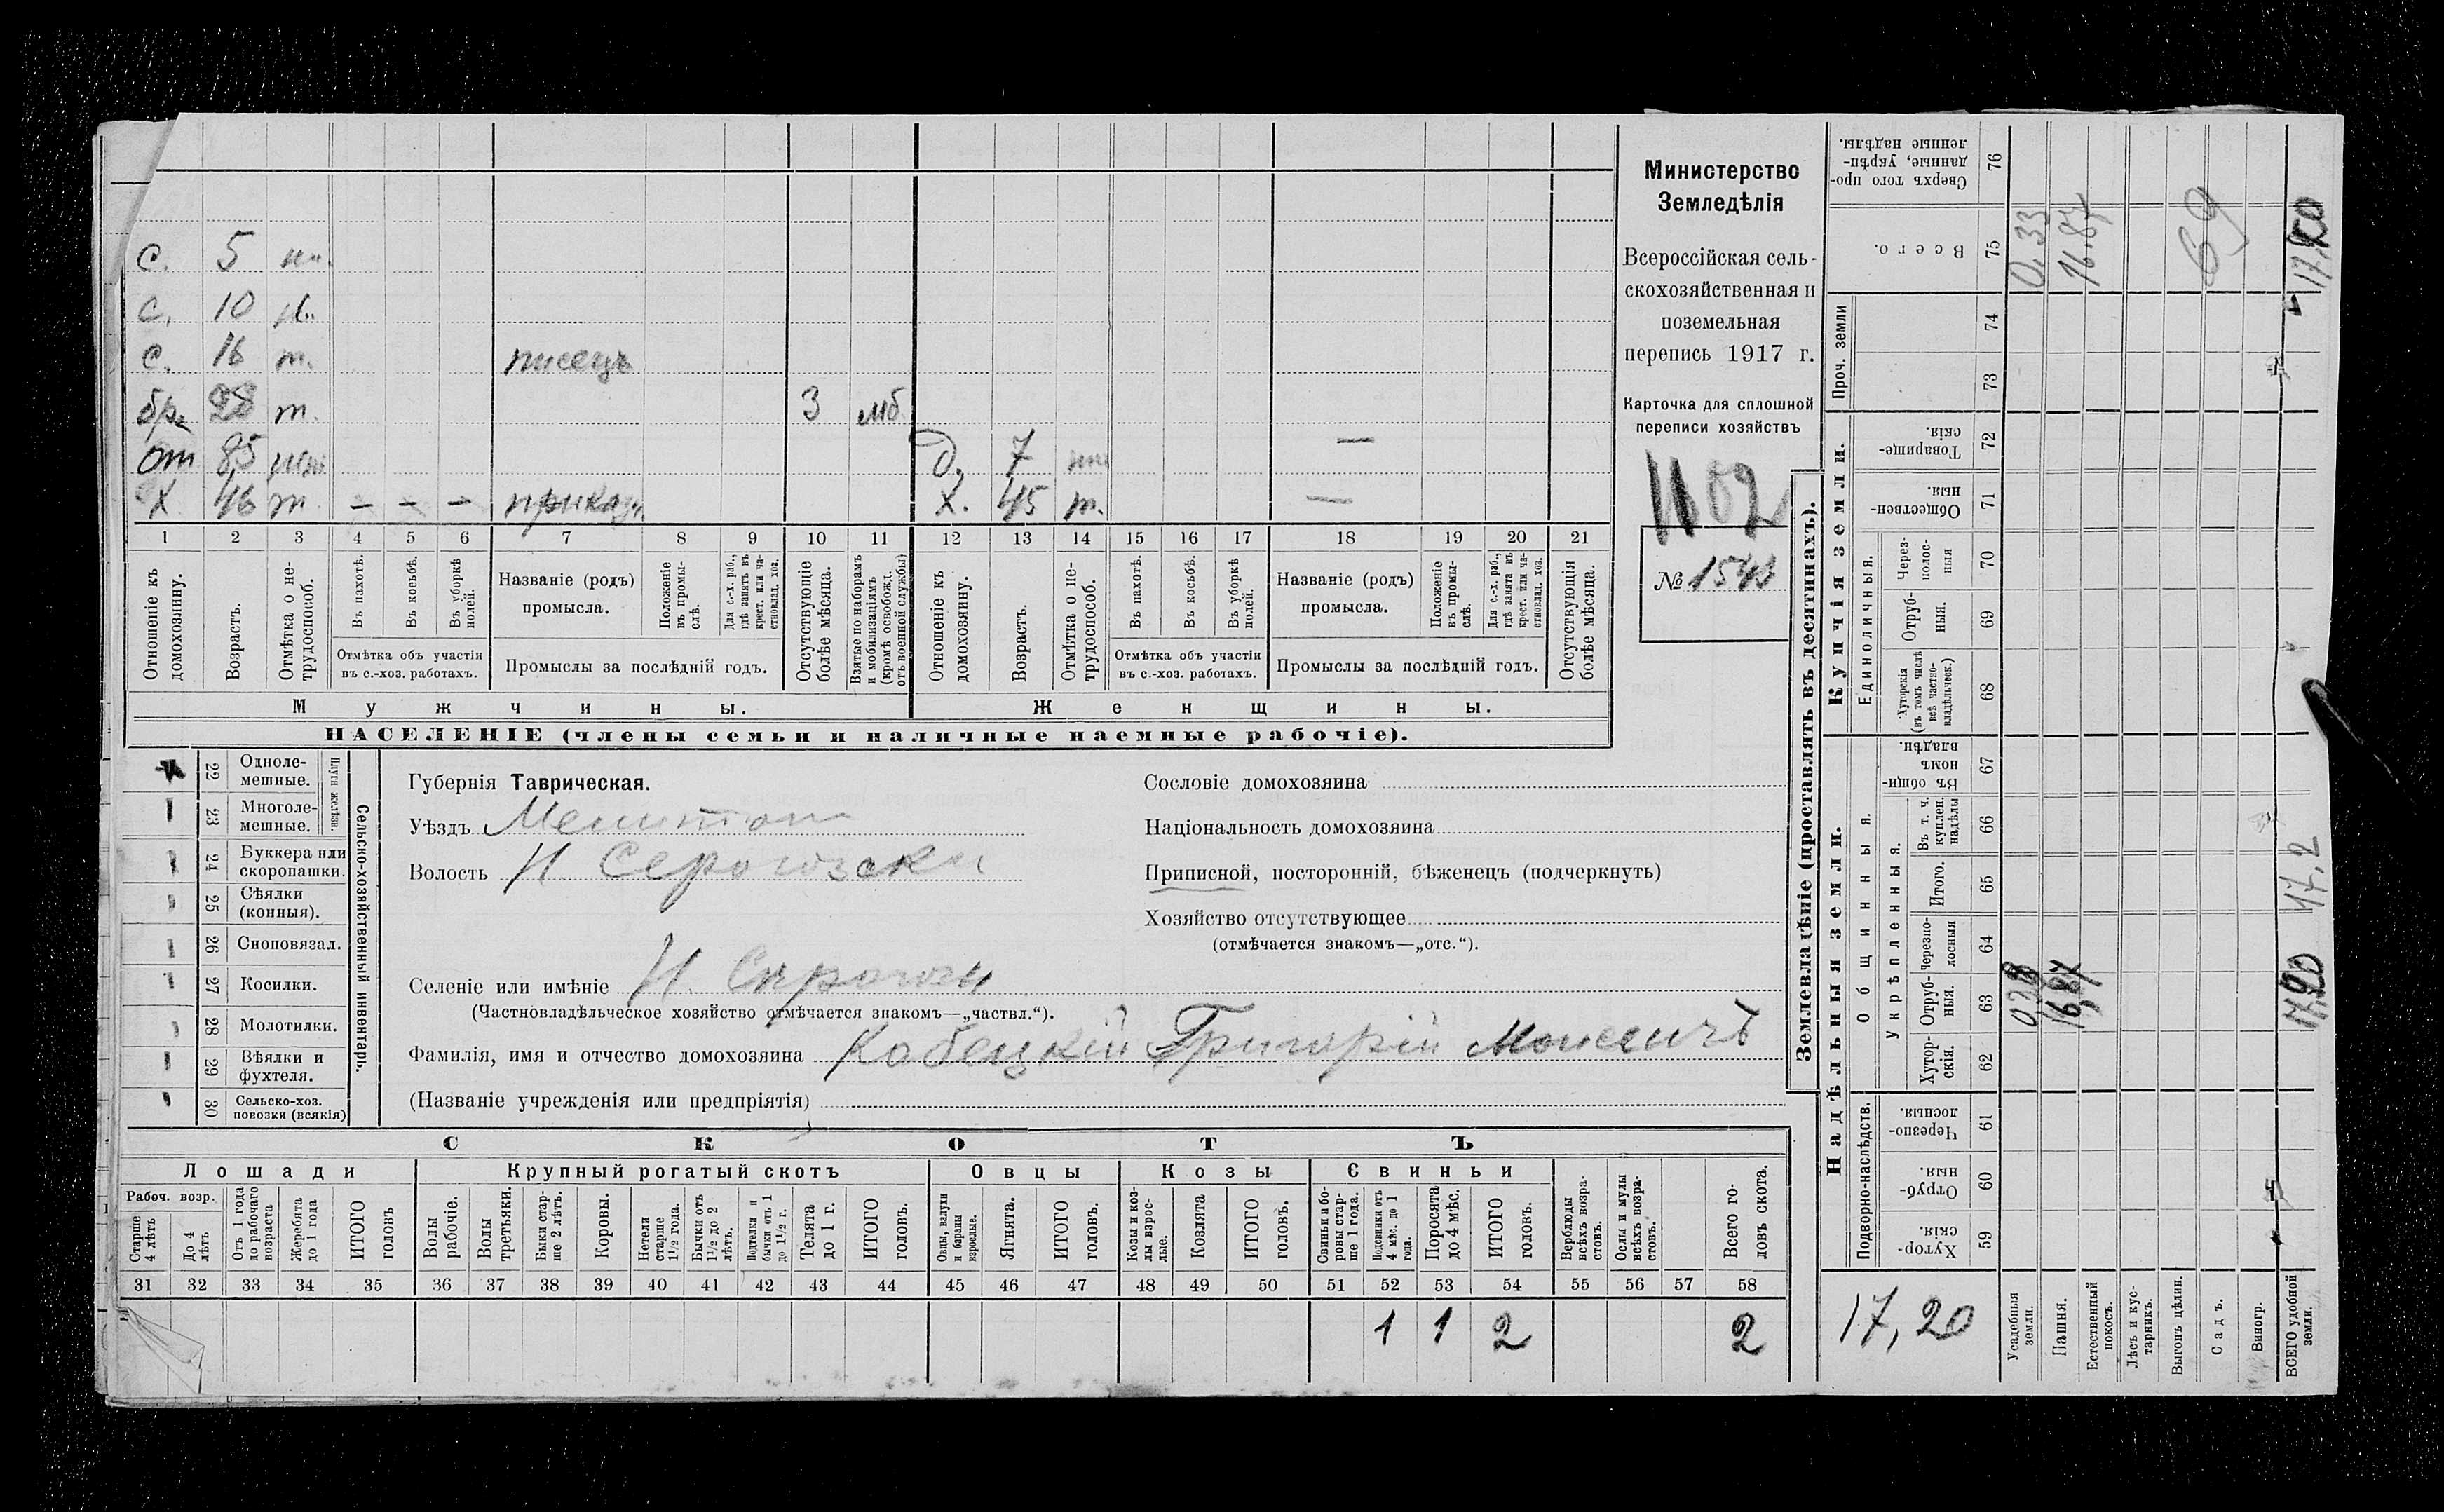 Министерство
Земледѣлія
Всероссійская сель-
скохозяйственная и
поземельная
перепись 1917 г.
Карточка для сплошной
переписи хозяйствъ
1102
№ 1543
с. 5
с. 10
с. 16 т. писецъ
бр. 28 т. 3 мб
от 85 д. 7 —
х 46 т — — — х. 45 т. —
1 2 3 4 5 6 7 8 9 10 11 12 13 14 15 16 17 18 19 20 21
Отношеніе къ домохозяину.
Возрастъ.
Отмѣтка о не-трудоспособ.
Въ пахотѣ.
Въ косьбѣ.
Въ уборкѣ полей.
Отмѣтка объ участіи въ с.-хоз. работахъ.
Названіе (родъ) промысла.
Положеніе въ промы-слѣ.
Для с.-х. раб., гдѣ занятъ въ крест. или ча-стновлад. хоз.
Промыслы за послѣдній годъ.
Отсутствующіе болѣе мѣсяца.
Взятые по наборамъ и мобилизаціямъ (кромѣ освобожд. отъ военной службы)
Отношеніе къ домохозяину.
Возрастъ.
Отмѣтка о не-трудоспособ.
Въ пахотѣ.
Въ косьбѣ.
Въ уборкѣ полей.
Отмѣтка объ участіи въ с.-хоз. работахъ.
Названіе (родъ) промысла.
Положеніе въ промы-слѣ.
Для с.-х. раб., гдѣ занята въ крест. или ча-стновлад. хоз.
Промыслы за послѣдній годъ.
Отсутствующія болѣе мѣсяца.
Мужчины. Женщины.
НАСЕЛЕНІЕ (члены семьи и наличные наемные рабочіе).
22 Одноле-мешные.
23 Многоле-мешные.
Плуги желѣзн.
24 Буккера или скоропашки.
25 Сѣялки (конныя).
26 Сноповязал.
27 Косилки.
28 Молотилки.
29 Вѣялки и фухтеля.
30 Сельско-хоз. повозки (всякія)
Сельско-хозяйственный инвентарь.
Губернія Таврическая.
Уѣздъ Мелитоп
Волость Н. Серогозска
Селеніе или имѣніе Н. Серогозы
(Частновладѣльческое хозяйство отмѣчается знакомъ—„частвл.“).
Фамилія, имя и отчество домохозяина Кобецкій Григорій Моисеичъ
(Названіе учрежденія или предпріятія)
Сословіе домохозяина
Національность домохозяина
Приписной, посторонній, бѣженецъ (подчеркнуть)
Хозяйство отсутствующее
(отмѣчается знакомъ—„отс.“).
СКОТЪ
Лошади Крупный рогатый скотъ Овцы Козы Свиньи
Рабоч. возр.
Старше 4 лѣтъ
До 4 лѣтъ
Отъ 1 года до рабочаго возраста
Жеребята до 1 года
ИТОГО головъ
Волы рабочіе.
Волы третьяки.
Быки стар-ше 2 лѣтъ.
Коровы.
Нетели старше 1½ года.
Бычки отъ 1½ до 2 лѣтъ.
Подтелки и бычки отъ 1 до 1½ г.
Телята до 1 г.
ИТОГО головъ.
Овцы, валухи и бараны взрослые.
Ягнята.
ИТОГО головъ.
Козы и коз-лы взрос-лые.
Козлята
ИТОГО головъ.
Свиньи и бо-ровы стар-ше 1 года.
Подсвинки отъ 4 мѣс. до 1 года.
Поросята до 4 мѣс.
ИТОГО головъ.
Верблюды всѣхъ возра-стовъ.
Ослы и мулы всѣхъ возра-стовъ.
Всего го-ловъ скота.
31 32 33 34 35 36 37 38 39 40 41 42 43 44 45 46 47 48 49 50 51 52 53 54 55 56 57 58
1 1 2 2
Землевладѣніе (проставлять въ десятинахъ).
Надѣльныя земли. Купчія земли. Проч. земли
Подворно-наслѣдств.
Общинныя.
Укрѣпленныя.
Единоличныя.
Хутор-скія. 59
Отруб-ныя. 60
Черезпо-лосныя. 61
Хутор-скія. 62
Отруб-ныя. 63
Черезпо-лосныя 64
Итого. 65
Въ т. ч. куплен. надѣлы 66
Въ общи-номъ владѣн. 67
Хуторскія (въ томъ числѣ всѣ частно-владѣльческ.) 68
Отруб-ныя. 69
Через-полос-ныя 70
Обществен-ныя. 71
Товарище-скія. 72
73
74
Всего. 75
Сверхъ того про-данные, укрѣп-ленные надѣлы. 76
17,20
Усадебныя земли. 0,33
Пашня. 16,87 16.87
Естественный покосъ.
Лѣсъ и кус-тарникъ.
Выгонъ цѣлин.
Садъ. 69
Виногр.
ВСЕГО удобной земли. 17,20 17,2 17,20